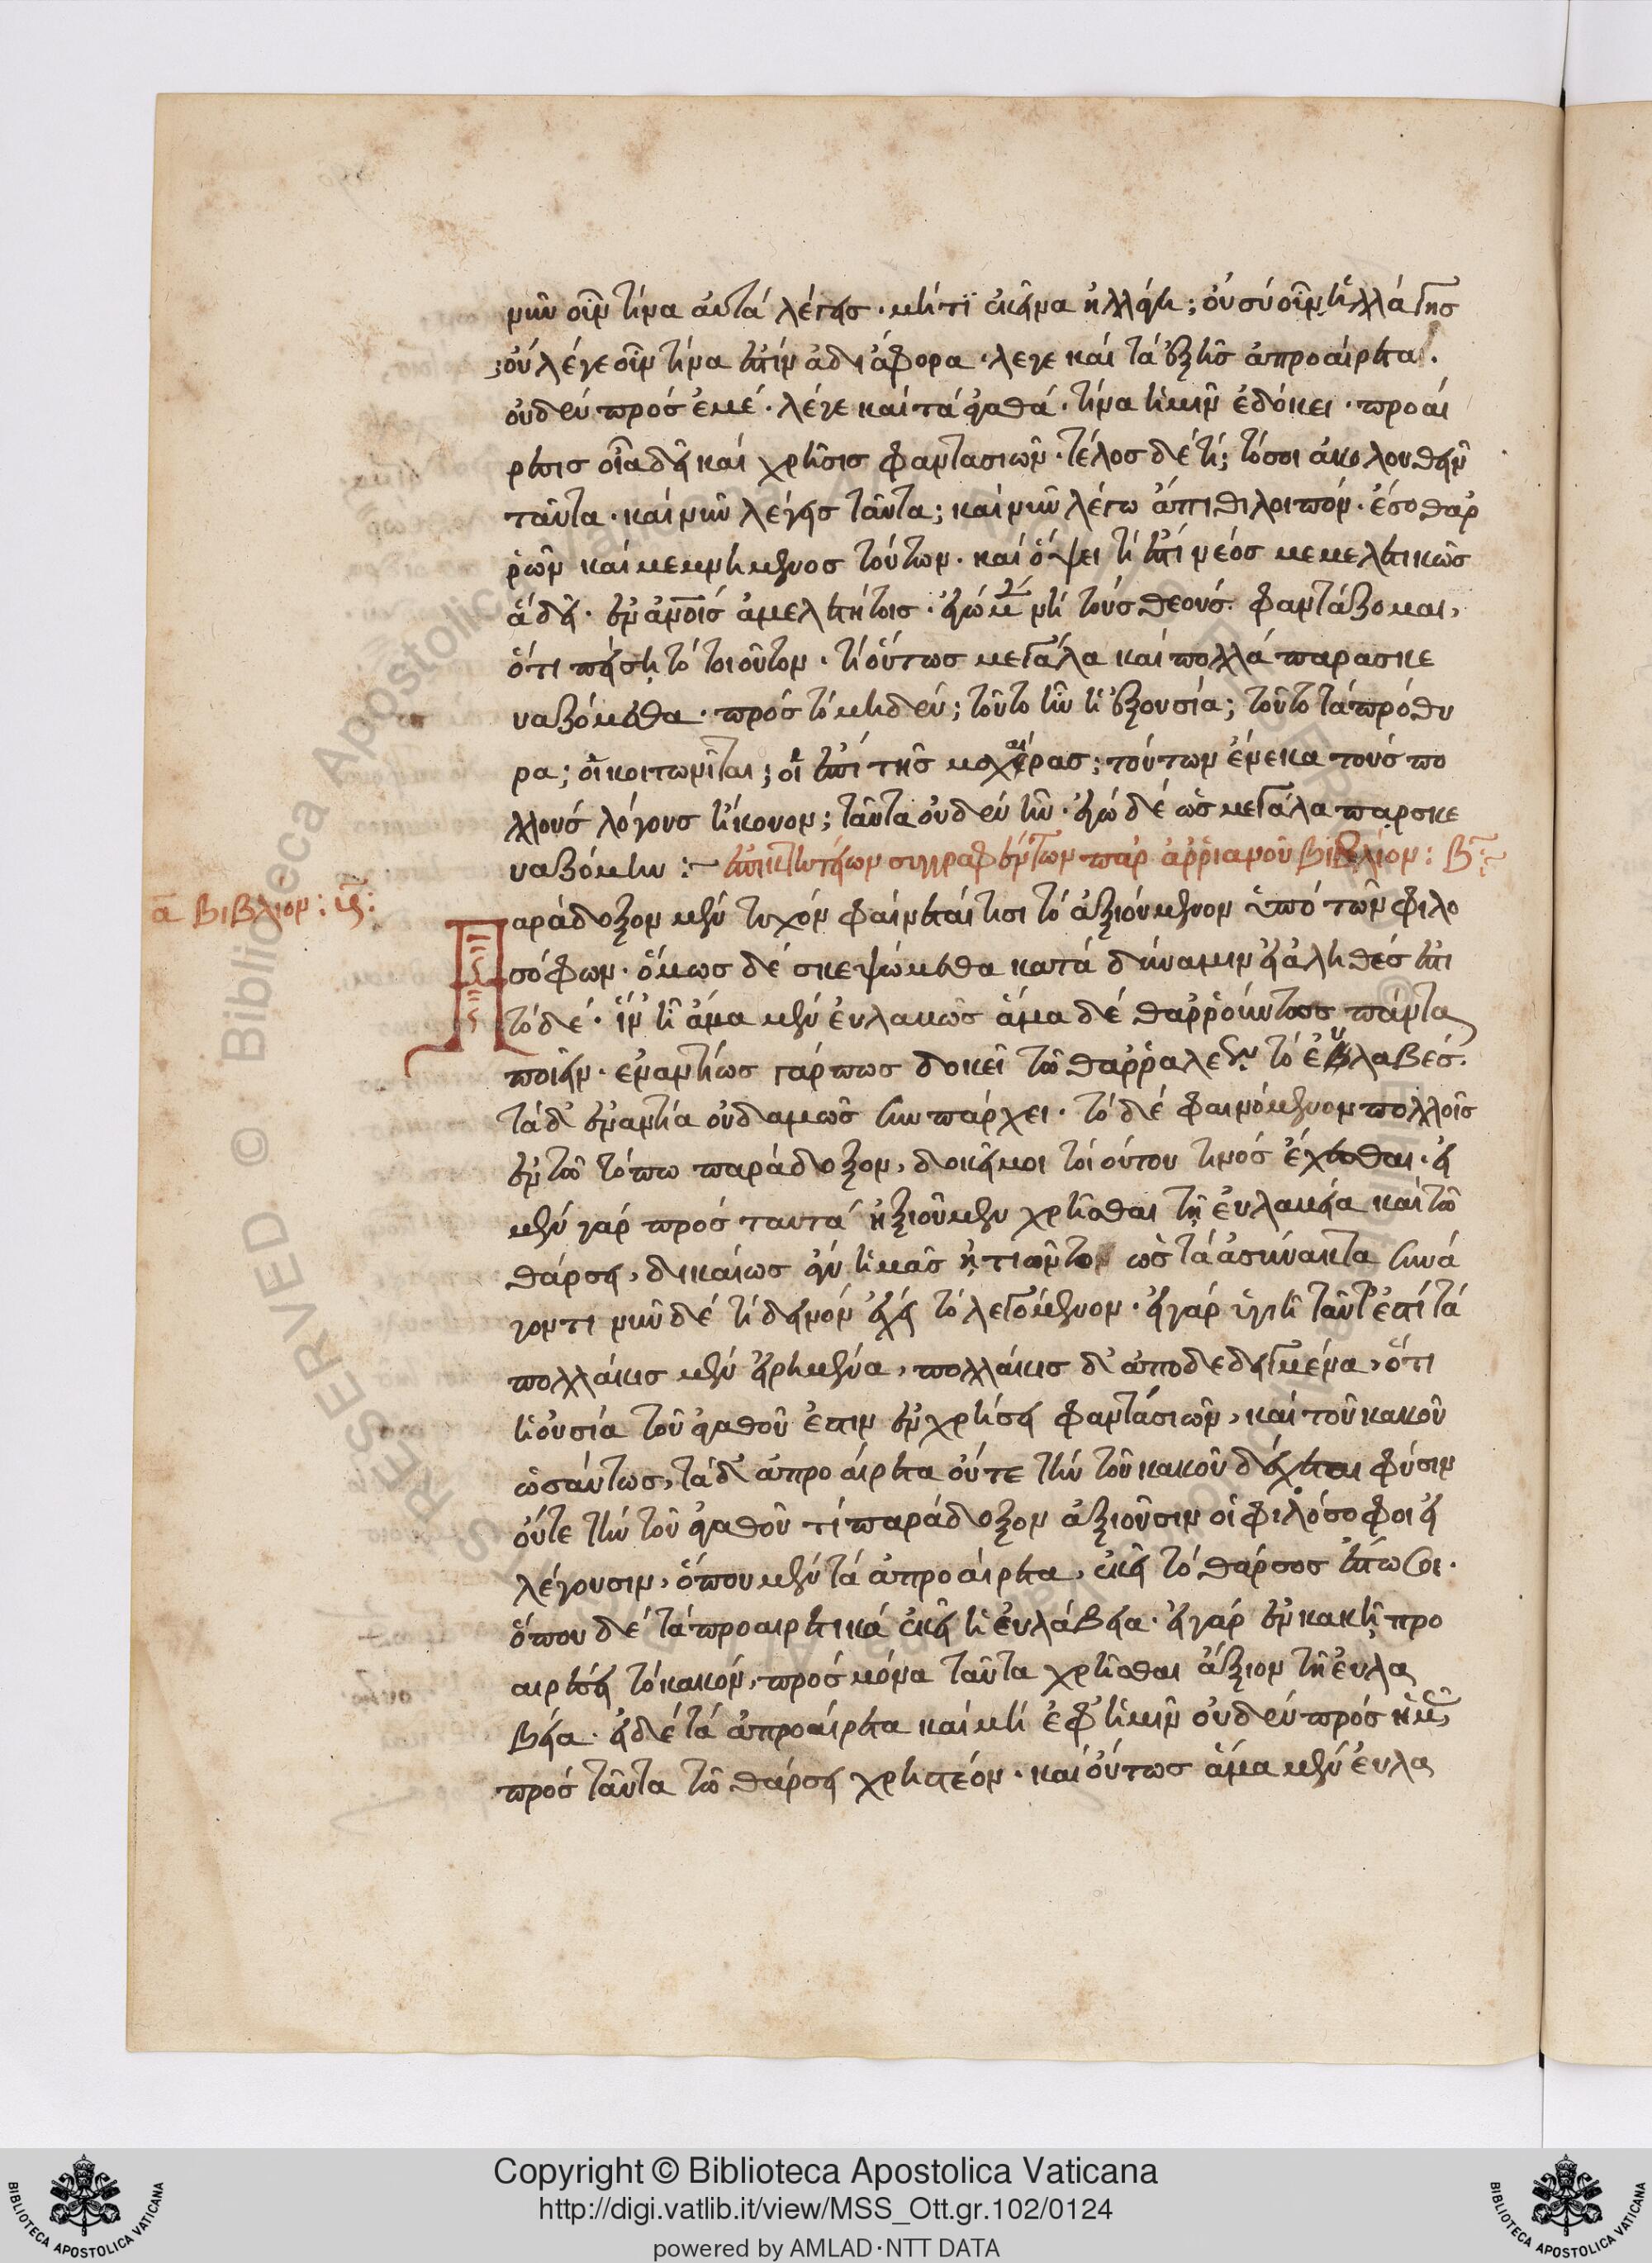 μὴν οἷν τίνα αὐτὰ λέγεις· μήτι ἐκεῖνα ἠλλάγη; οὐ σὺ οἷν ἠλλάγης
; οὐ λέγε οἷν τίνα ἐστὶν ἀδιάφορα· λεγε καὶ τὰ ἑξῆς ἀπροαίρετα.
οὐδὲν πρὸς ἐμέ· λέγε καὶ τὰ ἀγαθά· τίνα ἡμῖν ἐδόκει· προαί
ρεσις οἵα δεῖ καὶ χρῆσις φαντασιῶν· τέλος δὲ τί; τό σοι ἀκολουθεῖν
ταῦτα· καὶ νῦν λέγεις ταῦτα; καὶ νῦν λέγω ἄπιθι λοιπόν· ἔσο θαρ
ρῶν καὶ μεμνημένος τούτων· καὶ ὄψει τί ἐστὶ νέος μεμελετικὼς
ἃ δεῖ· ἐν ἀνοῖς ἀμελετήτοις· ἐγὼ μὲν νὴ τοὺς θεούς· φαντάζομαι,
ὅτι πείσῃ τὸ τοιοῦτον· τί οὕτως μεγάλα καὶ πολλὰ παρασκε
υαζόμεθα· πρὸς τὸ μηδέν; τοῦτο ἦν ἡ ἐξουσία; τοῦτο τὰ πρόθυ
ρα; οἱ κοιτωνῖται; οἱ ἐπὶ τῆς μαχαίρας; τούτων ἕνεκα τοὺς πο
λλοὺς λόγους ἤκουον; ταῦτα οὐδὲν ἦν· ἐγὼ δὲ ὡς μεγάλα παρσκε
υαζόμην :~ ἐπικτητείων συγγραφέντων παρ ἀρριανοῦ βιβλίον: β̄:~
ᾱ βιβλίον:
Παράδοξον μὲν τυχὸν φαίνεταί τισι τὸ ἀξιούμενον ὑπὸ τῶν φιλο
σόφων· ὅμως δὲ σκεψώμεθα κατὰ δύναμιν εἰ ἀληθές ἐστι
τόδε· ἱν ᾖ ἅμα μὲν εὐλαβῶς ἅμα δὲ θαρρούντως πάντα
ποιεῖν· ἐναντίως γάρ πως δοκεῖ τῶ θαρραλέῳ τὸ εὐλαβές·
τὰ δ ἐναντία οὐδαμῶς συνυπάρχει· τὸ δὲ φαινόμενον πολλοῖς
ἐν τῶ τόπω παράδοξον, δοκεῖ μοι τοιούτου τινὸς ἔχεσθαι· εἰ
μὲν γὰρ πρὸς ταυτὰ ἠξιοῦμεν χρῆσθαι τῇ εὐλαβεία καὶ τῶ
θάρσει, δικαίως ἂν ἡμᾶς ᾐτιῶντο ὡς τὰ ἀσύνακτα συνά
γοντι νῦν δὲ τί δεινὸν ἔχει τὸ λεγόμενον· εἰ γὰρ ὑγιῆ ταῦτ ἐστὶ τὰ
πολλάκις μὲν εἰρημένα, πολλάκις δ ἀποδεδειγμένα, ὅτι
ἡ οὐσία τοῦ ἀγαθοῦ ἐστιν ἐν χρήσει φαντασιῶν, καὶ τοῦ κακοῦ
ὡσαύτως, τὰ δ ἀπροαίρετα οὔτε τὴν τοῦ κακοῦ δέχεται φύσιν
οὔτε τὴν τοῦ ἀγαθοῦ τί παράδοξον ἀξιοῦσιν οἱ φιλόσοφοι εἰ
λέγουσιν, ὅπου μὲν τὰ ἀπροαίρετα, ἐκεῖ τὸ θάρσος ἔστω σοι·
ὅπου δὲ τὰ προαιρετικὰ ἐκεῖ ἡ εὐλάβεια· εἰ γὰρ ἐν κακῇ προ
αιρέσει τὸ κακόν, πρὸς μόνα ταῦτα χρῆσθαι ἄξιον τῇ εὐλα
βεία· εἰ δὲ τὰ ἀπροαίρετα καὶ μὴ ἐφ ἡμῖν οὐδὲν πρὸς ἡμᾶς
πρὸς ταῦτα τῶ θάρσει χρηστέον· καὶ οὕτως ἅμα μὲν εὐλα
Copyright © Biblioteca Apostolica Vaticana
http://digi.vatlib.it/view/MSS_Ott.gr.102/0124
powered by AMLAD·NTT DATA
BIBLIOTECA APOSTOLICA VATICANA
BIBLIOTECA APOSTOLICA VATICANA